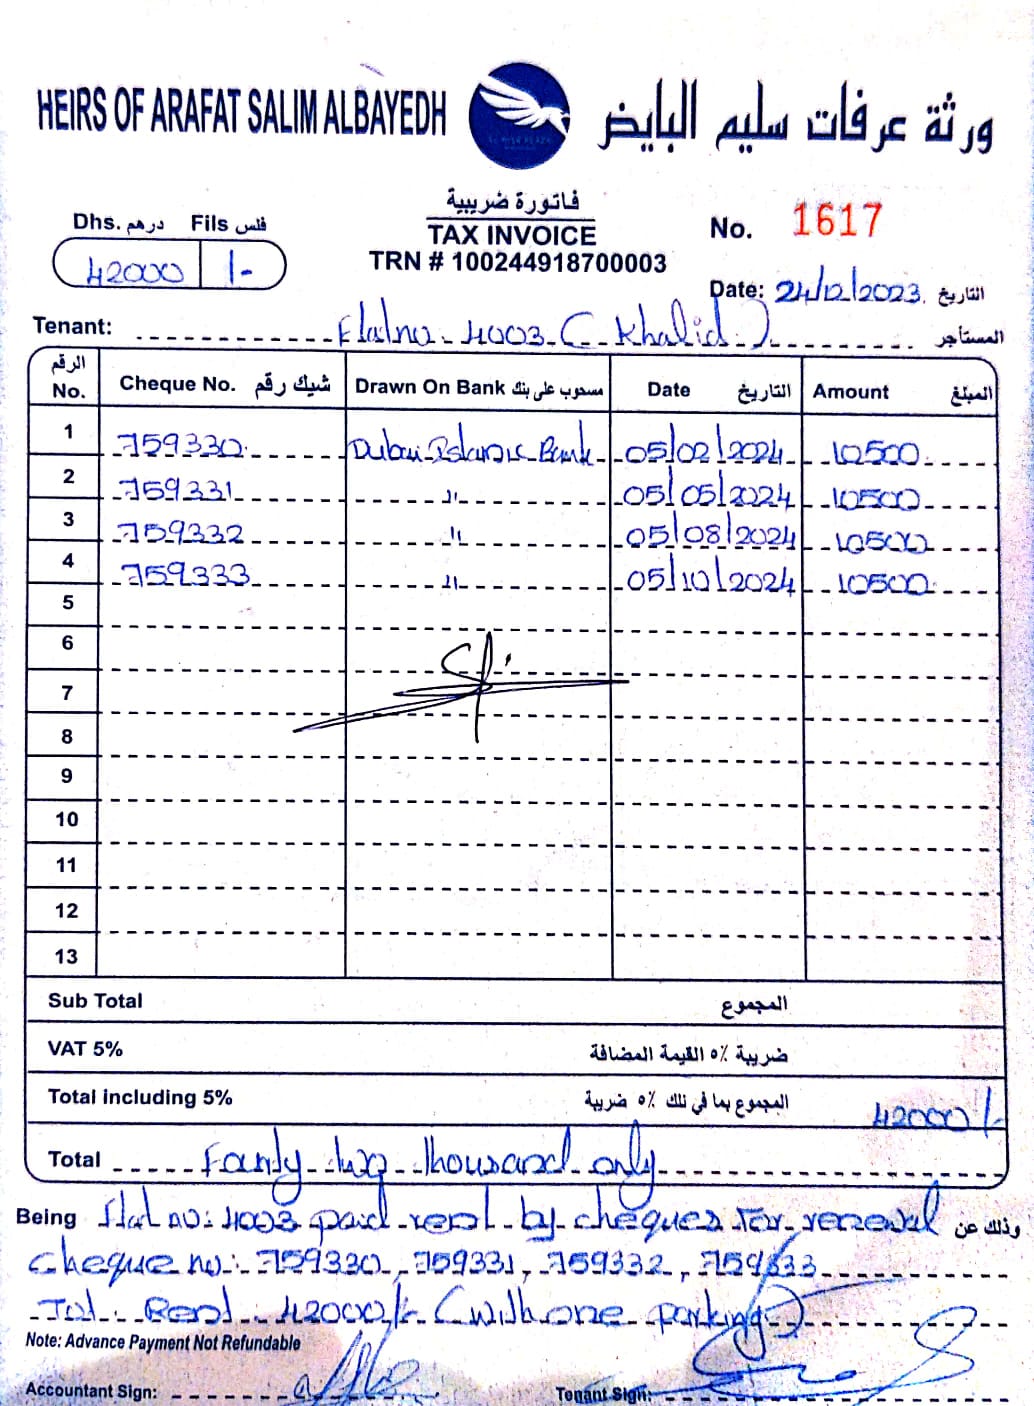 HEIRS OF ARAFAT SALIM ALBAYEDH ورثة عرفات سليم البايض
فاتورة ضريبية
Dhs. درهم Fils فلس
TAX INVOICE
No. 1617
42000 /-
TRN # 100244918700003
Date: 24/12/2023 التاريخ
Tenant: Flat no 4003 ( Khalid ) المستأجر
الرقم No. Cheque No. شيك رقم Drawn On Bank مسحوب على بنك Date التاريخ Amount المبلغ
1 759330 Dubai Islamic Bank 05/02/2024 10500
2 759331 " 05/05/2024 10500
3 759332 " 05/08/2024 10500
4 759333 " 05/10/2024 10500
5
6
7
8
9
10
11
12
13
Sub Total المجموع
VAT 5% ضريبة ٥٪ القيمة المضافة
Total including 5% المجموع بما في ذلك ٥٪ ضريبة 42000/-
Total Fourty two thousand only
Being flat no: 4003 paid rent by cheques for renewal وذلك عن
cheque no: 759330, 759331, 759332, 759333
Tot. Rent 42000/- (with one parking)
Note: Advance Payment Not Refundable
Accountant Sign: Tenant Sign: